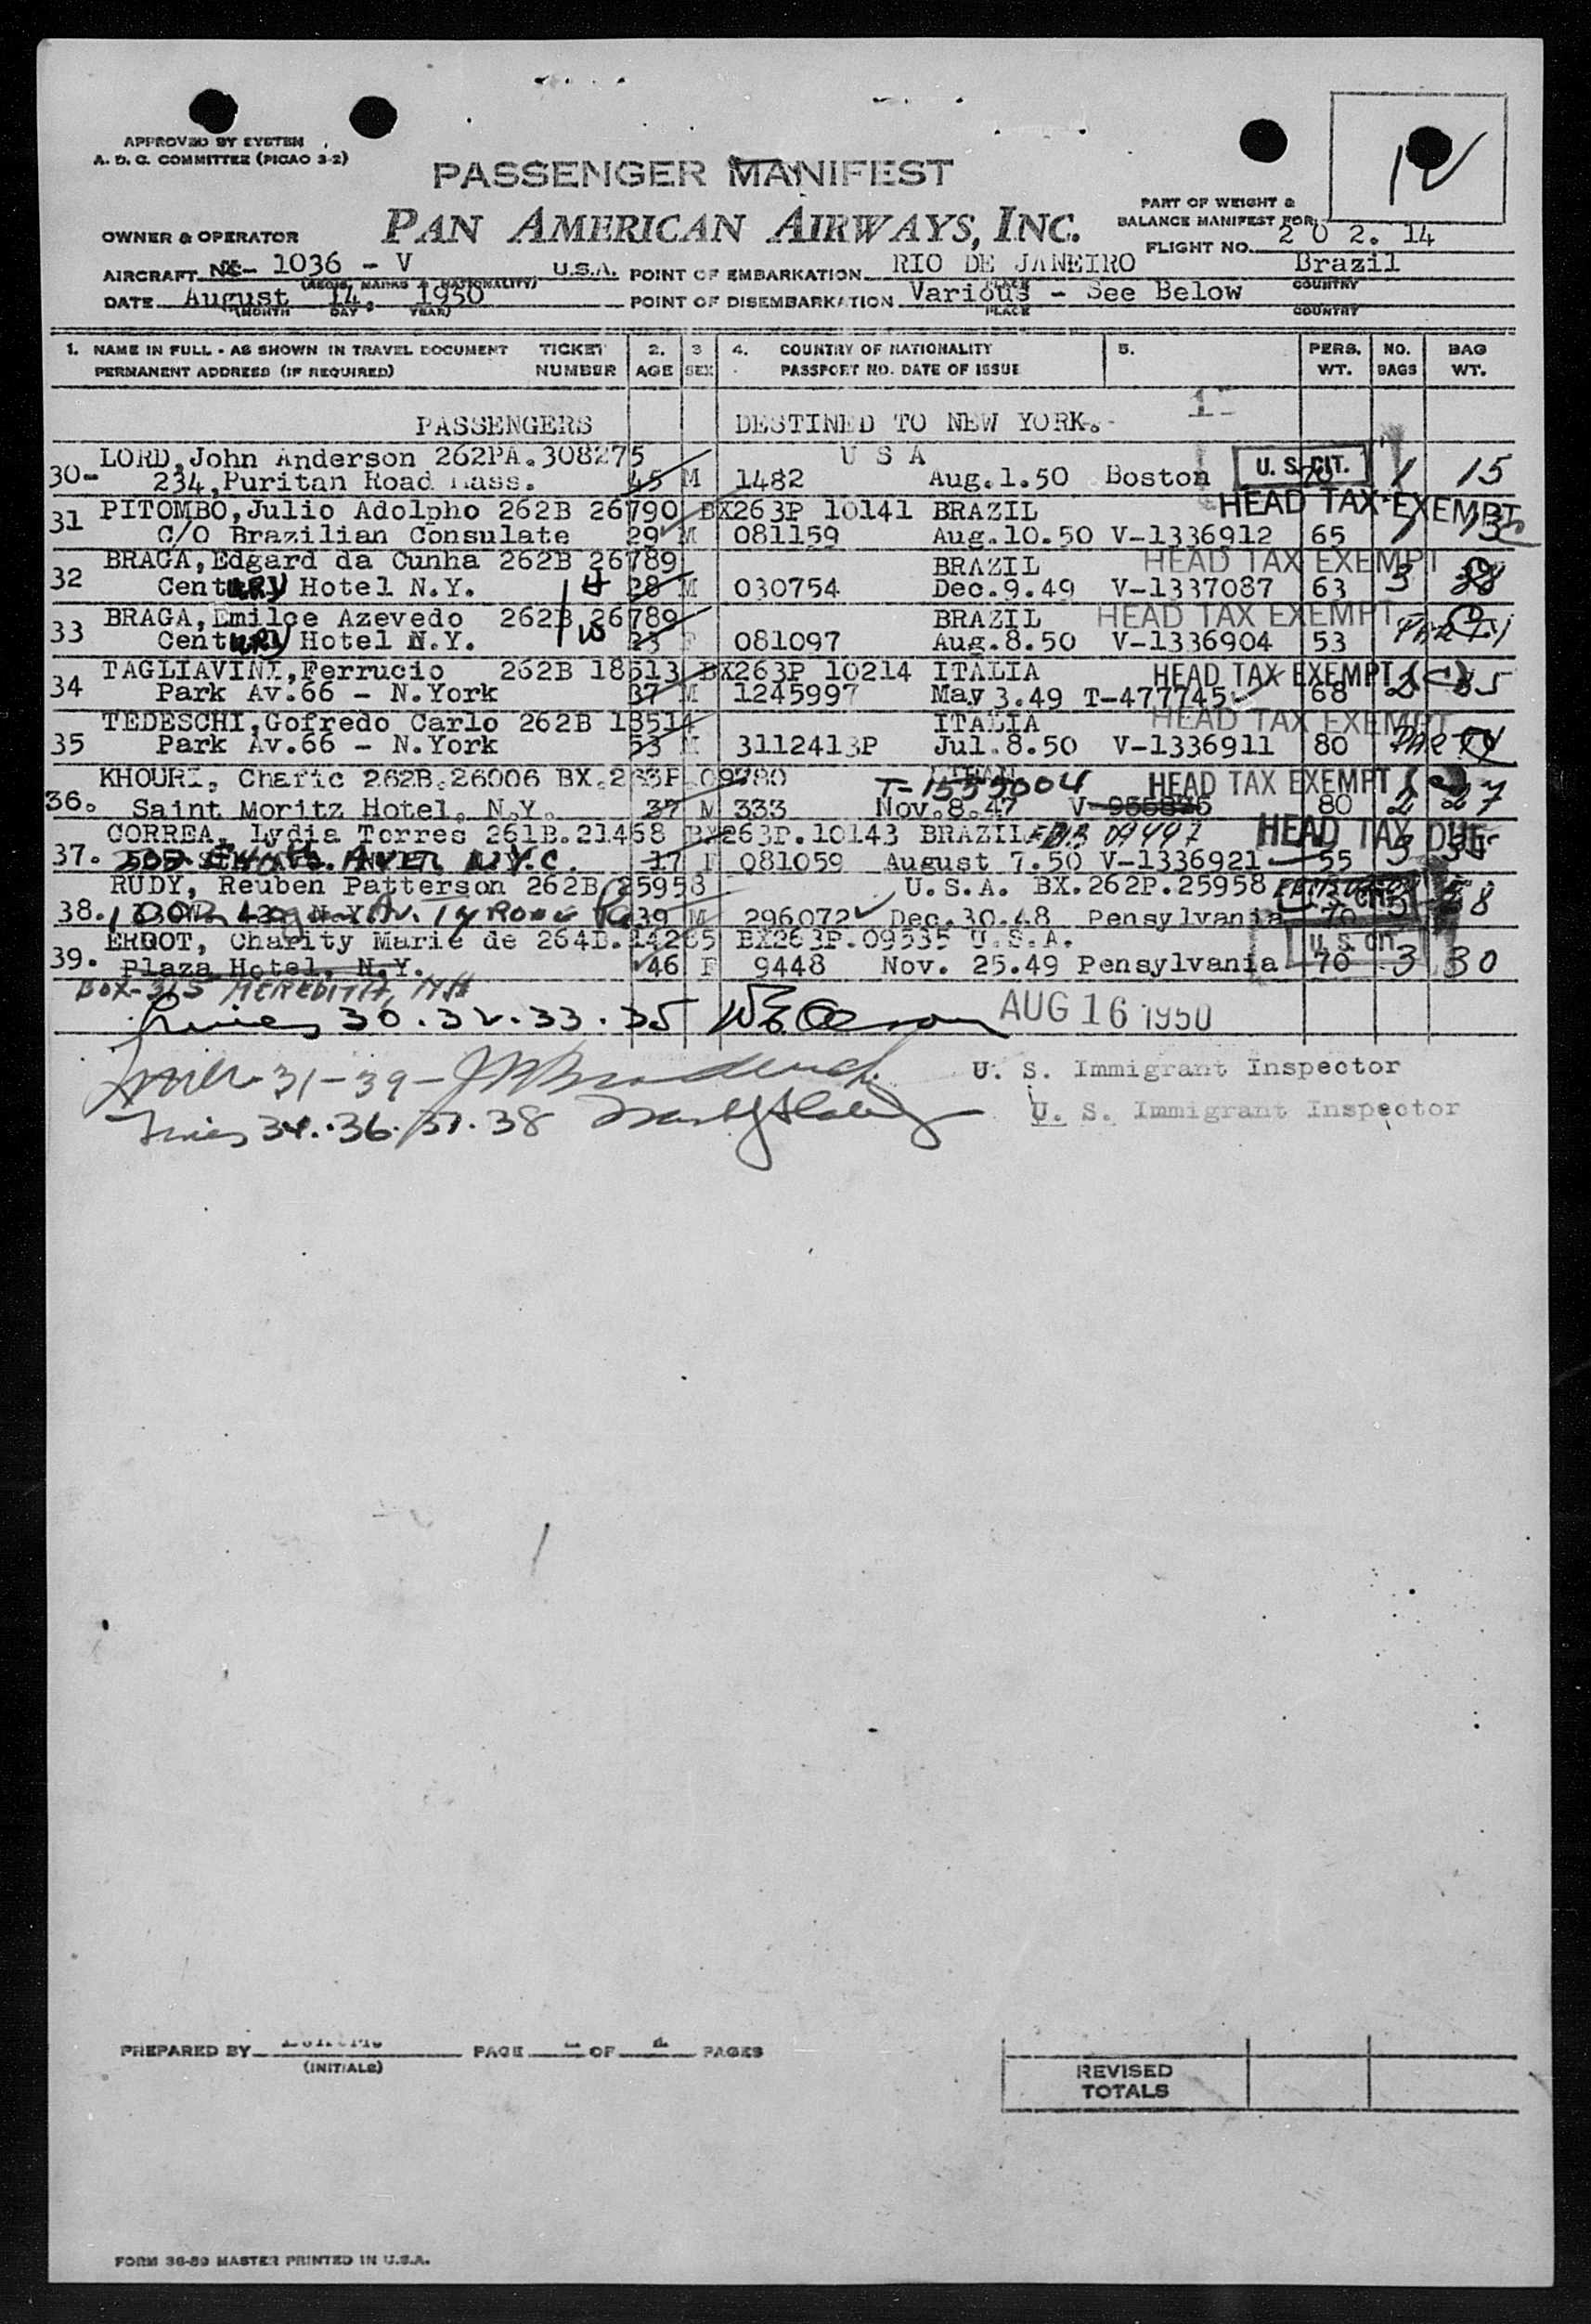 APPROVED BY SYSTEM
A. D. C. COMMITTEE (PICAO 3-2)
PASSENGER MANIFEST
PAN AMERICAN AIRWAYS, INC.
PART OF WEIGHT &
BALANCE MANIFEST FOR:
OWNER & OPERATOR
FLIGHT NO. 202. 14
AIRCRAFT 1036 - V U.S.A. POINT OF EMBARKATION RIO DE JANEIRO Brazil
(REGIS. MARKS & NATIONALITY) PLACE COUNTRY
DATE August 14, 1950 POINT OF DISEMBARKATION Various - See Below
(MONTH DAY YEAR) PLACE COUNTRY
1. NAME IN FULL - AS SHOWN IN TRAVEL DOCUMENT TICKET 2. 3 4. COUNTRY OF NATIONALITY 5. PERS. NO. BAG
PERMANENT ADDRESS (IF REQUIRED) NUMBER AGE SEX PASSPORT NO. DATE OF ISSUE WT. BAGS WT.
PASSENGERS DESTINED TO NEW YORK.-
LORD, John Anderson 262PA.308275 U S A
30- 234, Puritan Road Mass. 45 M 1482 Aug.1.50 Boston U. S. CIT. 70 1 15
PITOMBO, Julio Adolpho 262B 26790 BX263P 10141 BRAZIL HEAD TAX EXEMPT
31 C/O Brazilian Consulate 29 M 081159 Aug.10.50 V-1336912 65 1
BRAGA, Edgard da Cunha 262B 26789 BRAZIL HEAD TAX EXEMPT
32 Century Hotel N.Y. 28 M 030754 Dec.9.49 V-1337087 63 3 38
BRAGA, Emilce Azevedo 262B 26789 BRAZIL HEAD TAX EXEMPT
33 Century Hotel N.Y. 23 F 081097 Aug.8.50 V-1336904 53
TAGLIAVINI, Ferrucio 262B 18513 BX263P 10214 ITALIA HEAD TAX EXEMPT
34 Park Av.66 - N.York 37 M 1245997 May 3.49 T-477745 68
TEDESCHI, Gofredo Carlo 262B 18514 ITALIA HEAD TAX EXEMPT
35 Park Av.66 - N.York 53 M 3112413P Jul.8.50 V-1336911 80
KHOURI, Charic 262B.26006 BX.263P 09780 T-1555004 HEAD TAX EXEMPT
36. Saint Moritz Hotel, N.Y. 37 M 333 Nov.8.47 80 2 27
CORREA, Lydia Torres 261B.21468 BX263P.10143 BRAZIL HEAD TAX DUE
37. N.Y.C. 17 F 081059 August 7.50 V-1336921 55 3
RUDY, Reuben Patterson 262B 25958 U.S.A. BX.262P.25958
38. Logan Av. Tyrone Pa 39 M 296072 Dec.30.48 Pensylvania 70
ERDOT, Charity Marie de 264B.14265 BX263P.09535 U.S.A. U. S. CIT.
39. Plaza Hotel, N.Y. 46 F 9448 Nov. 25.49 Pensylvania 70 3 30
BOX-315 MEREDITH, NH
Lines 30.32.33.35 AUG 16 1950
31-39- U. S. Immigrant Inspector
Lines 34.36.37.38 U. S. Immigrant Inspector
PREPARED BY PAGE OF PAGES
(INITIALS)
REVISED
TOTALS
FORM 36-89 MASTER PRINTED IN U.S.A.